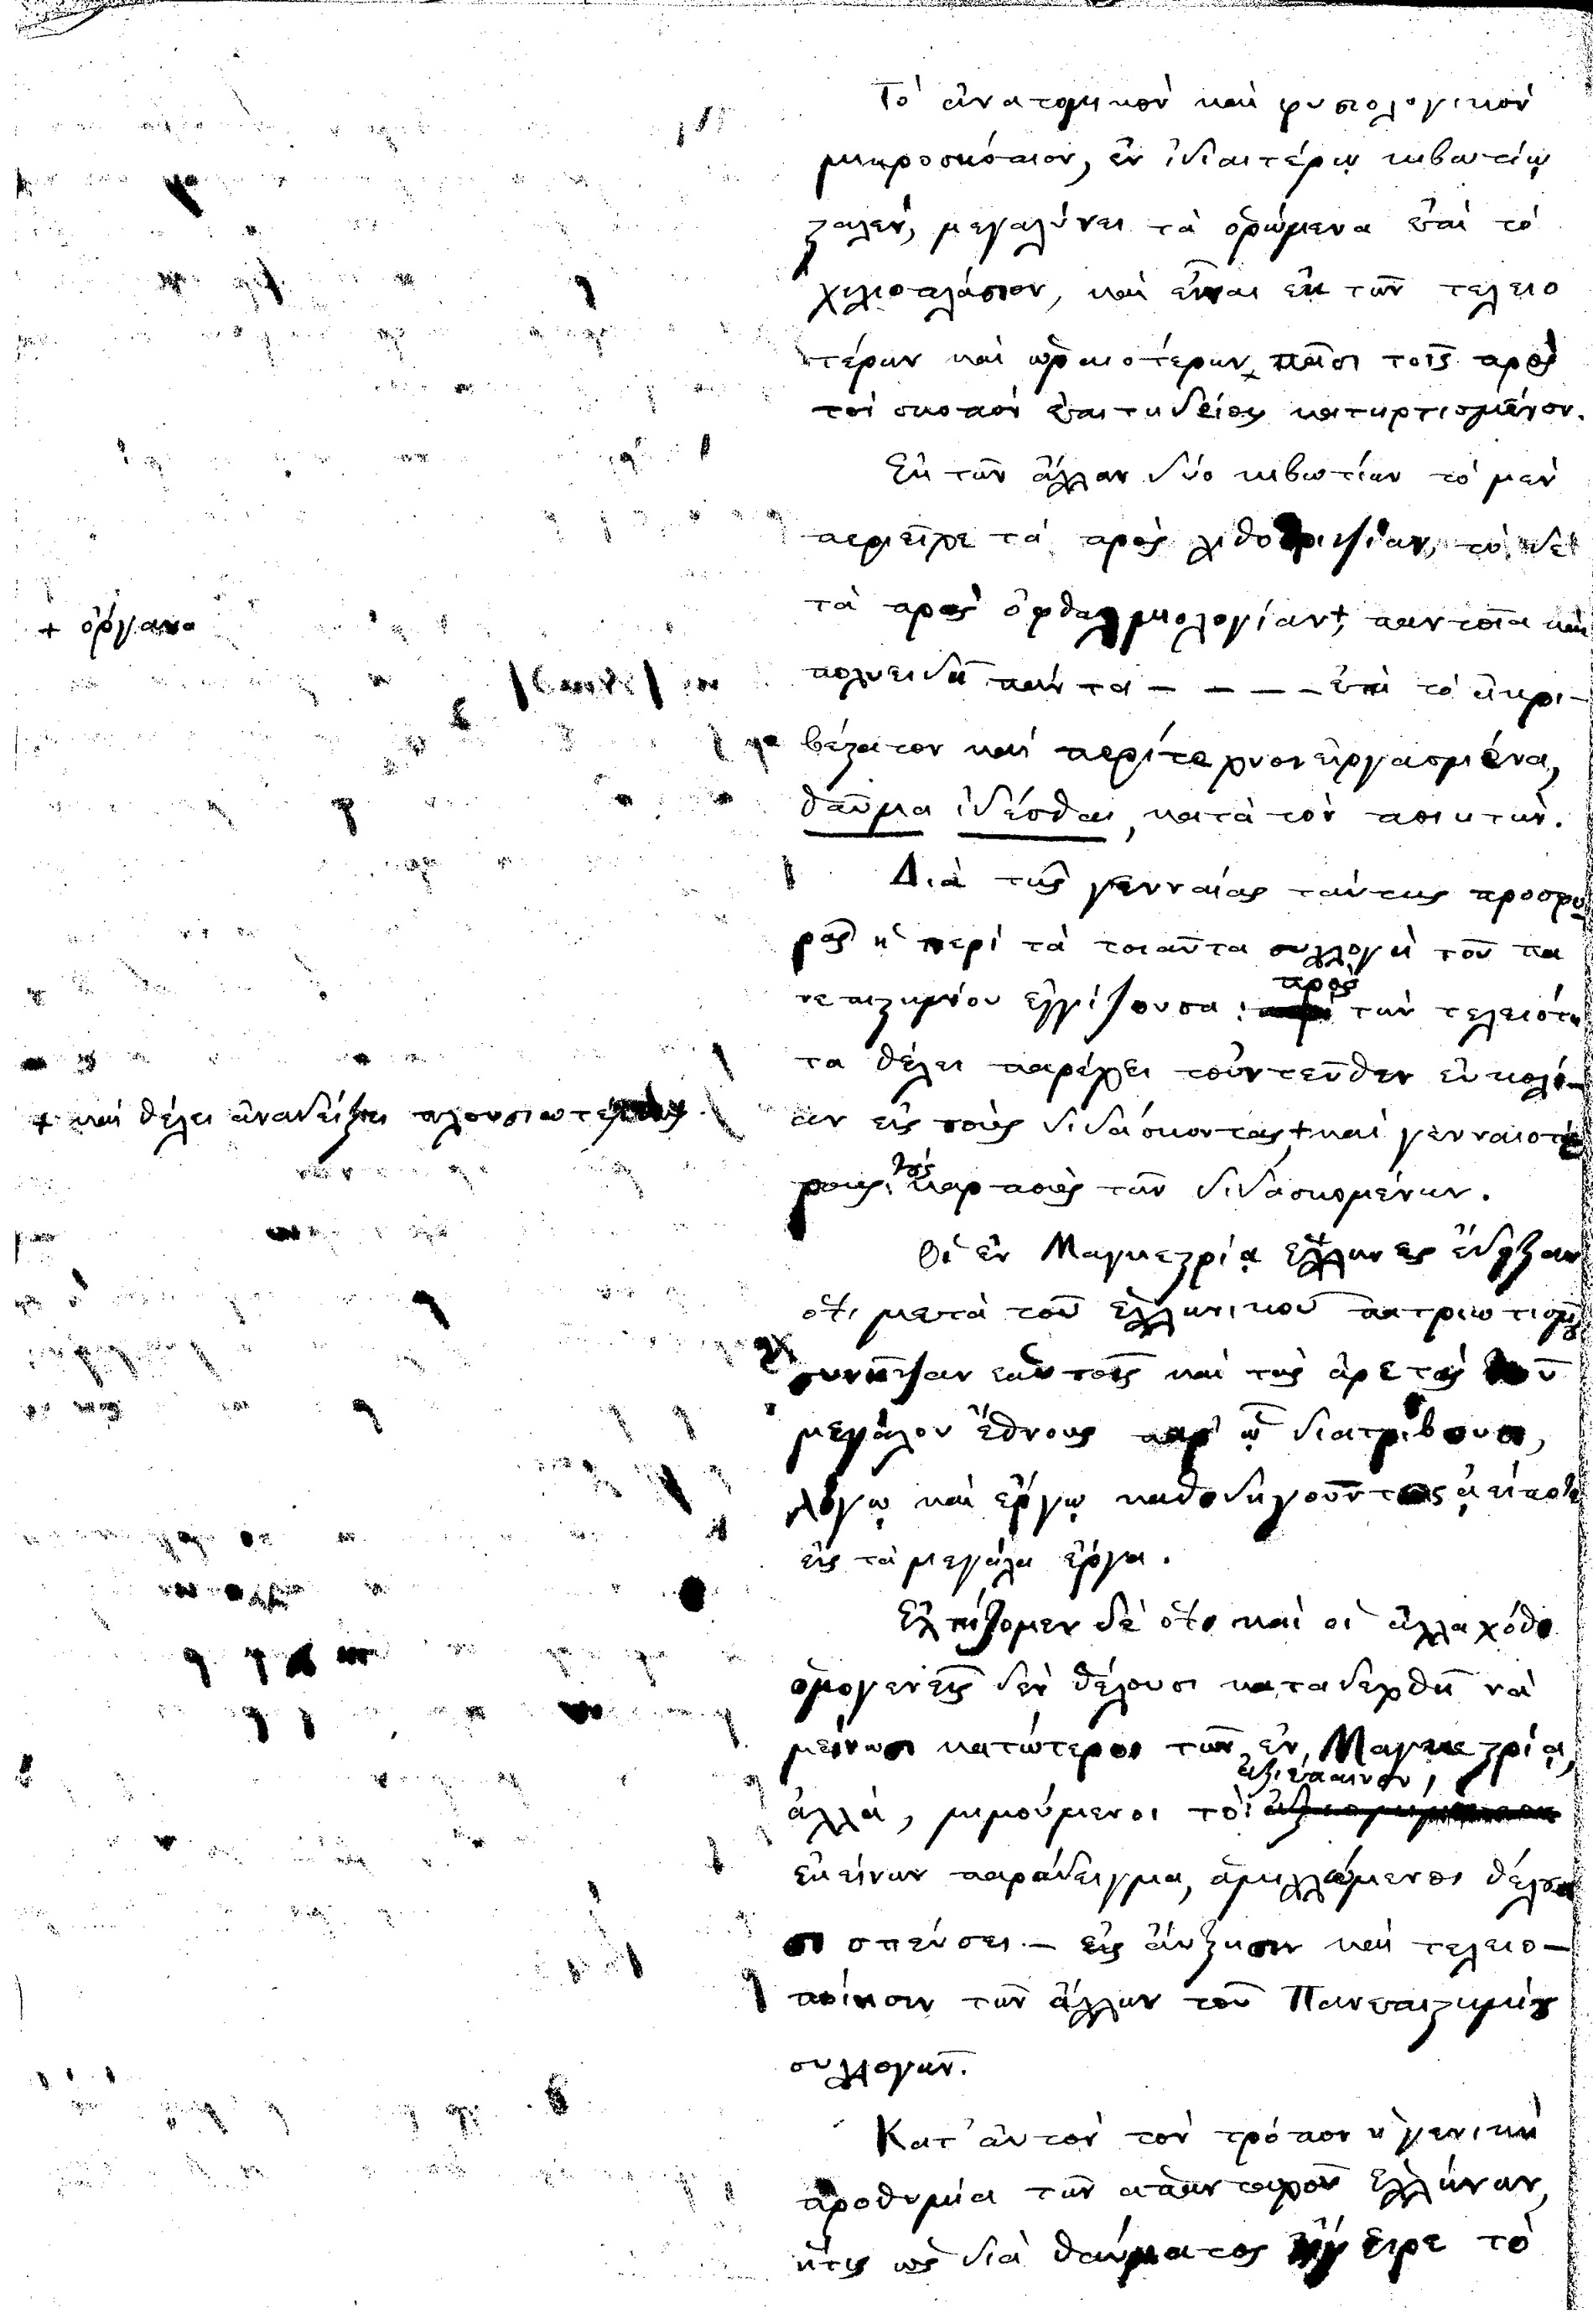 Τὸ ἀνατομικὸν καὶ φυσιολογικὸν
μικροσκόπιον, ἐν ἰδιαιτέρῳ κιβωτίῳ
σταλέν, μεγαλύνει τὰ ὁρώμενα ἐπὶ τὸ
χιλιοπλάσιον, καὶ εἶναι ἐκ τῶν τελειο
τέρων καὶ ὡραιοτέρων, πᾶσι τοῖς πρὸς
τὸν σκοπὸν ἐπιτηδείοις κατηρτισμένον.
Ἐκ τῶν ἄλλων δύο κιβωτίων τὸ μὲν
περιεῖχε τὰ πρὸς λιθοτριψίαν, τὸ δὲ
τὰ πρὸς ὀφθαλμολογίαν +, παντοῖα καὶ
+ ὄργανα
πολυειδῆ πάντα — — — — ἐπὶ τὸ ἀκρι-
βέστατον καὶ περίτεχνον εἰργασμένα,
θαῦμα ἰδέσθαι, κατὰ τὸν ποιητήν.
Διὰ τῆς γενναίας ταύτης προσφο
ρᾶς ἡ περὶ τὰ τοιαῦτα συλλογὴ τοῦ πα
νεπιστημίου ἐγγίζουσα πρὸς τὴν τελειότη
τα θέλει παρέχει τοὐντεῦθεν εὐκολί-
αν εἰς τοὺς διδάσκοντας, + καὶ γενναιοτέ
+ καὶ θέλει ἀναδείξει πλουσιωτέρους
ρους τοὺς καρποὺς τῶν διδασκομένων.
Οἱ ἐν Μαγκεστρίᾳ ἕλληνες ἔδειξαν
ὅτι μετὰ τοῦ ἑλληνικοῦ πατριωτισμοῦ
συνῆψαν ἑαυτοῖς καὶ τὰς ἀρετὰς τοῦ
μεγάλου ἔθνους παρ' ᾧ διατρίβουσι,
λόγῳ καὶ ἔργῳ καθοδηγοῦντος
εἰς τὰ μεγάλα ἔργα.
Ἐλπίζομεν δὲ ὅτι καὶ οἱ ἀλλαχόθι
ὁμογενεῖς δὲν θέλουσι καταδεχθῆ νὰ
μείνωσι κατώτεροι τῶν ἐν Μαγκεστρίᾳ,
ἀλλά, μιμούμενοι τὸ ἀξιέπαινον
ἐκείνων παράδειγμα, ἁμιλλώμενοι θέλου
σι σπεύσει — εἰς αὔξησιν καὶ τελειο-
ποίησιν τῶν ἄλλων τοῦ Πανεπιστημίου
συλλογῶν.
Κατ' αὐτὸν τὸν τρόπον ἡ γενικὴ
προθυμία τῶν ἁπανταχοῦ Ἑλλήνων,
ἥτις ὡς διὰ θαύματος ἤγειρε τὸ